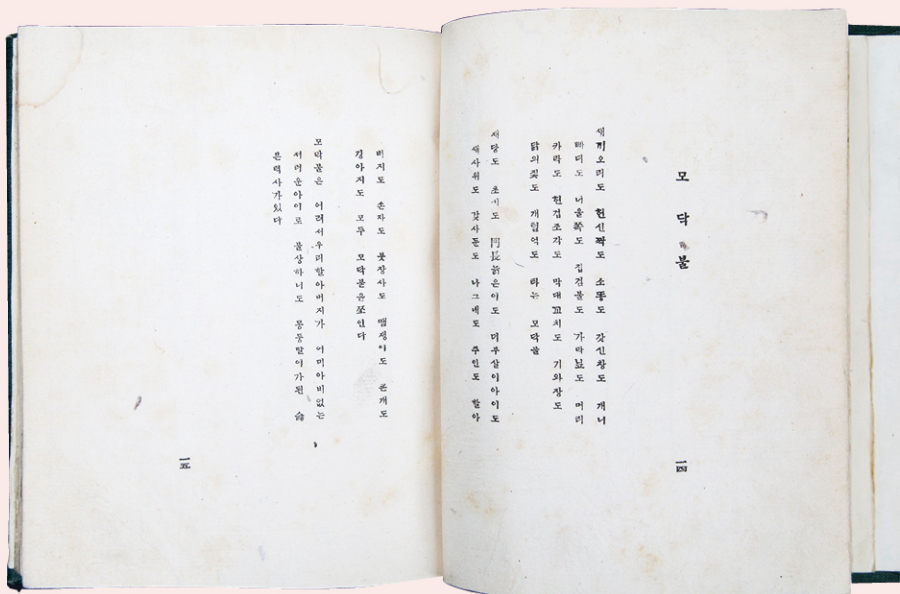 모닥불
새끼오리도 헌신짝도 소똥도 갓신창도 개니
빠디도 너울쪽도 집검불도 가락닢도 머리
카락도 헌겁조각도 막대꼬치도 기와장도
닭의짗도 개털억도 타는 모닥불
재당도 초시도 門長늙은이도 더부살이아이도
새사위도 갓사둔도 나그네도 주인도 할아
一四
버지도 손자도 붓장사도 땜쟁이도 큰개도
강아지도 모두 모닥불을쪼인다
모닥불은 어려서우리할아버지가 어미아비없는
서러운아이로 불상하니도 몽둥발이가된 슳
븐력사가있다
一五